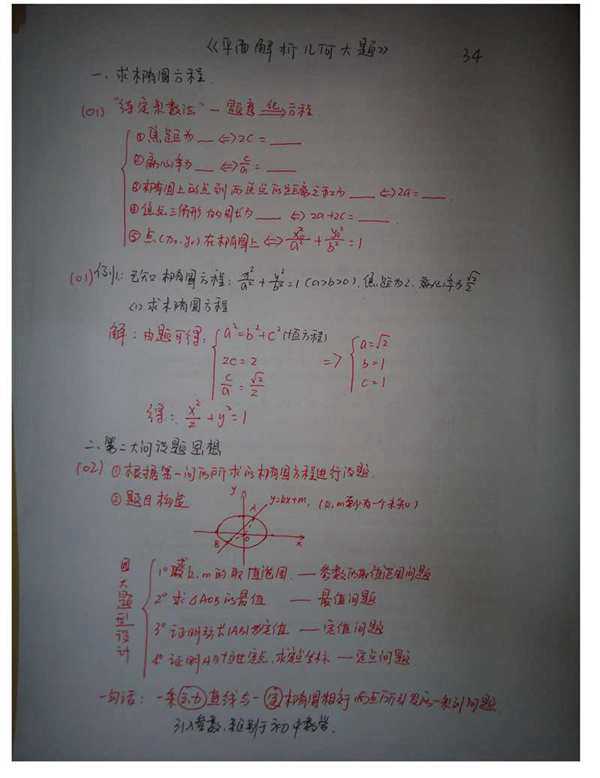 《平面解析几何大题》 34
一、求椭圆方程
(01) "待定系数法" — 题意 化⟹ 方程
① 焦距为 __ ⟺ 2c = __
② 离心率为 __ ⟺ c/a = __
③ 椭圆上的点到两焦点的距离之和为 __ ⟺ 2a = __
④ 焦点三角形的周长为 __ ⟺ 2a+2c = __
⑤ 点(x₀, y₀)在椭圆上 ⟺ x₀²/a² + y₀²/b² = 1
(01) 例1: 已知椭圆方程: x²/a² + y²/b² = 1 (a>b>0), 焦距为2, 离心率为√2/2
(1) 求椭圆方程
解: 由题可得: { a² = b² + c² (恒方程) ⟹ { a = √2
2c = 2 b = 1
c/a = √2/2 c = 1
得: x²/2 + y² = 1
二、第二大问设题思想
(02) ① 根据第一问所求的椭圆方程进行设题
② 题目构造 y A y=kx+m, (k, m至少有一个未知)
B O x
四大题型设计
1° 求k, m的取值范围 — 参数的取值范围问题
2° 求△AOB的最值 — 最值问题
3° 证明弦长|AB|为定值 — 定值问题
4° 证明AB过定点, 求定点坐标 — 定点问题
一句话: 一条(动)直线与一(定)椭圆相交两点所引发的一系列问题
引入参数,